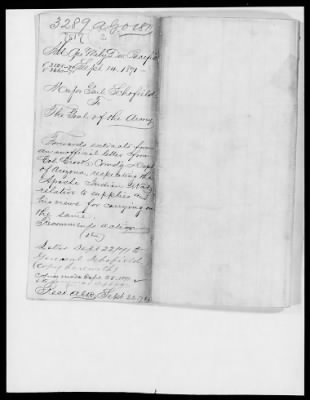 3289 A.G.O. 1871
2
Hd Qrs Mil'y Div Pacific
Sept 14, 1871
Major Genl Schofield
To
The Genl of the Army
Forwards extracts from
an unofficial letter from
Col Crook, Comdg Dept
of Arizona, respecting the
Apache Indian War,
relative to supplies and
his views for carrying on
the same.
Recommends action
Letter Sept 22/71 to
General Schofield
(copy herewith)
Copies made Sept 25
Rec'd AGO, Sept 22, 71